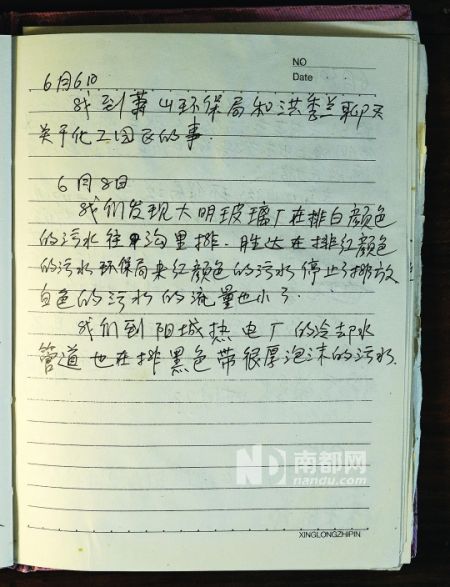 NO
Date
6月6日
我到萧山环保局和洪季兰聊天
关于化工园区的事.
6月8日
我们发现大明玻璃厂在排白颜色
的污水往中沟里排. 胜达在排红颜色
的污水环保局来红颜色的污水停止了排放
白色的污水的流量也小了.
我们到 阳城热电厂的冷却水
管道也在排黑色带很厚泡沫的污水.
ND 南都网
nandu.com
XINGLONGZHIPIN